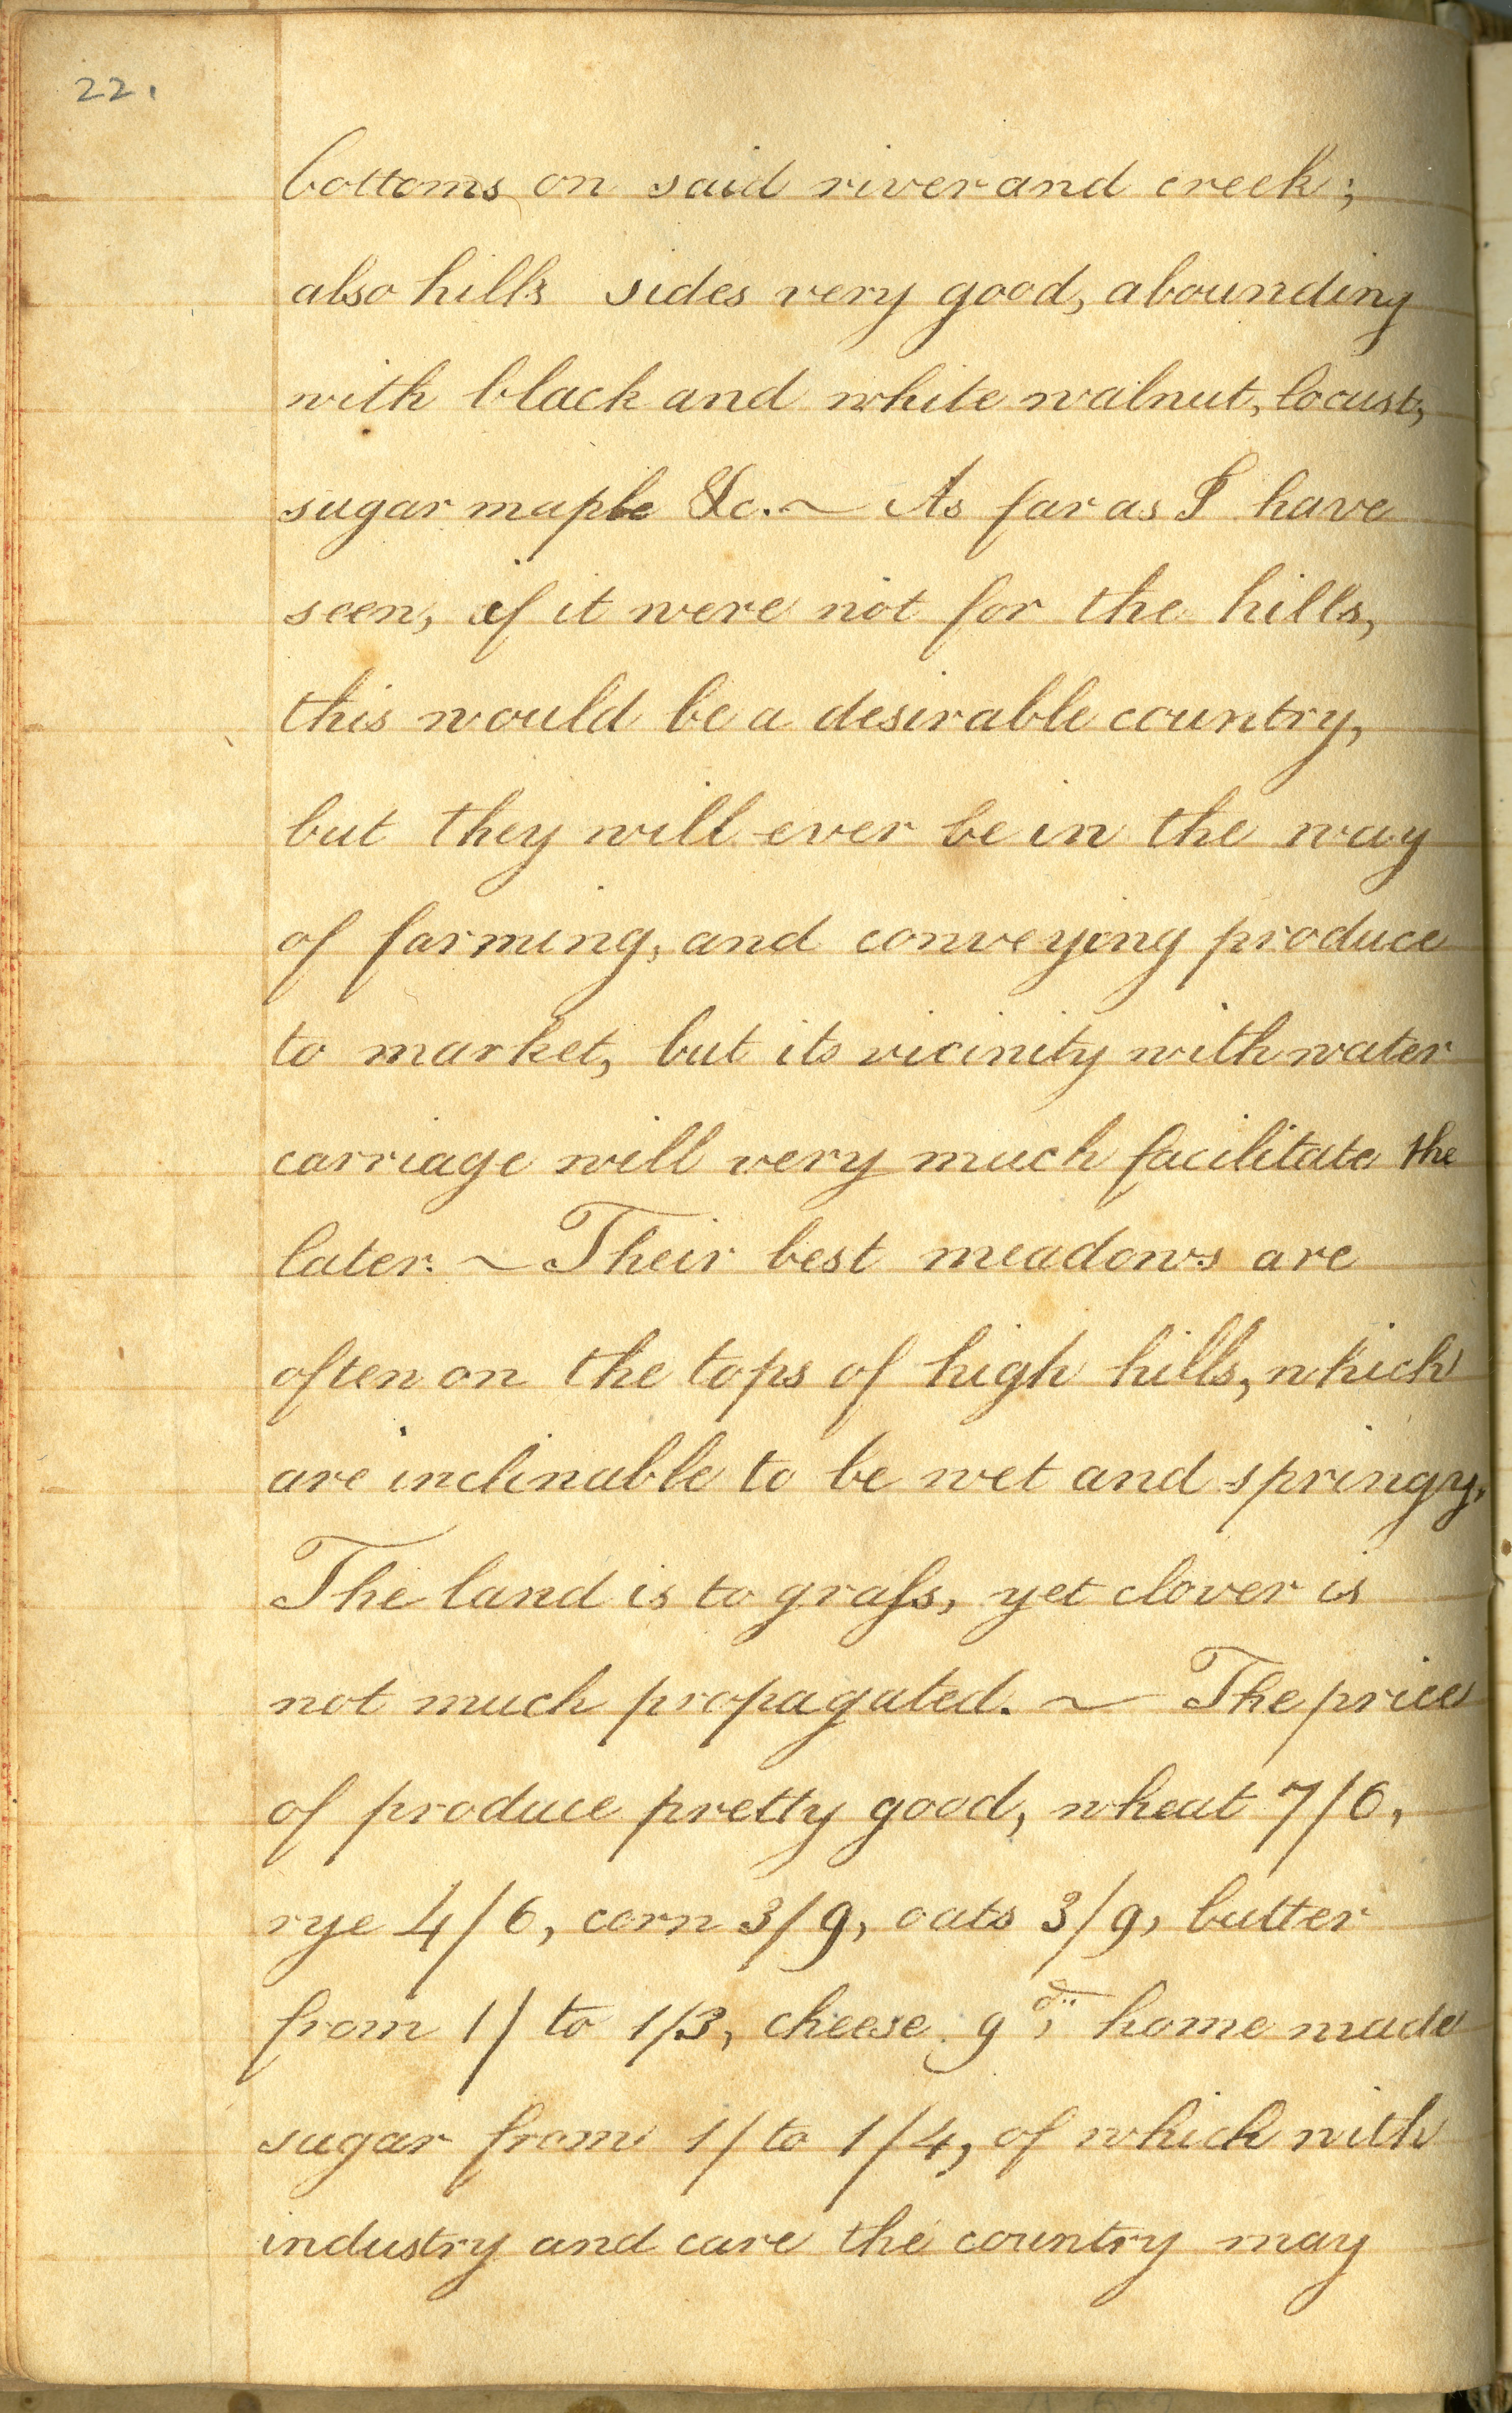 22.
bottoms on said river and creek;
also hills sides very good, abounding
with black and white walnut, locust,
sugar maple &c. ~ As far as I have
seen, if it were not for the hills,
this would be a desirable country,
but they will ever be in the way
of farming, and conveying produce
to market, but its vicinity with water
carriage will very much facilitate the
later. ~ Their best meadows are
often on the tops of high hills, which
are inclinable to be wet and springy,
The land is to graſs, yet clover is
not much propagated. ~ The price
of produce pretty good, wheat 7/6,
rye 4/6, corn 3/9, oats 3/9, butter
from 1/ to 1/3, cheese 9d, home made
sugar from 1/ to 1/4, of which with
industry and care the country may